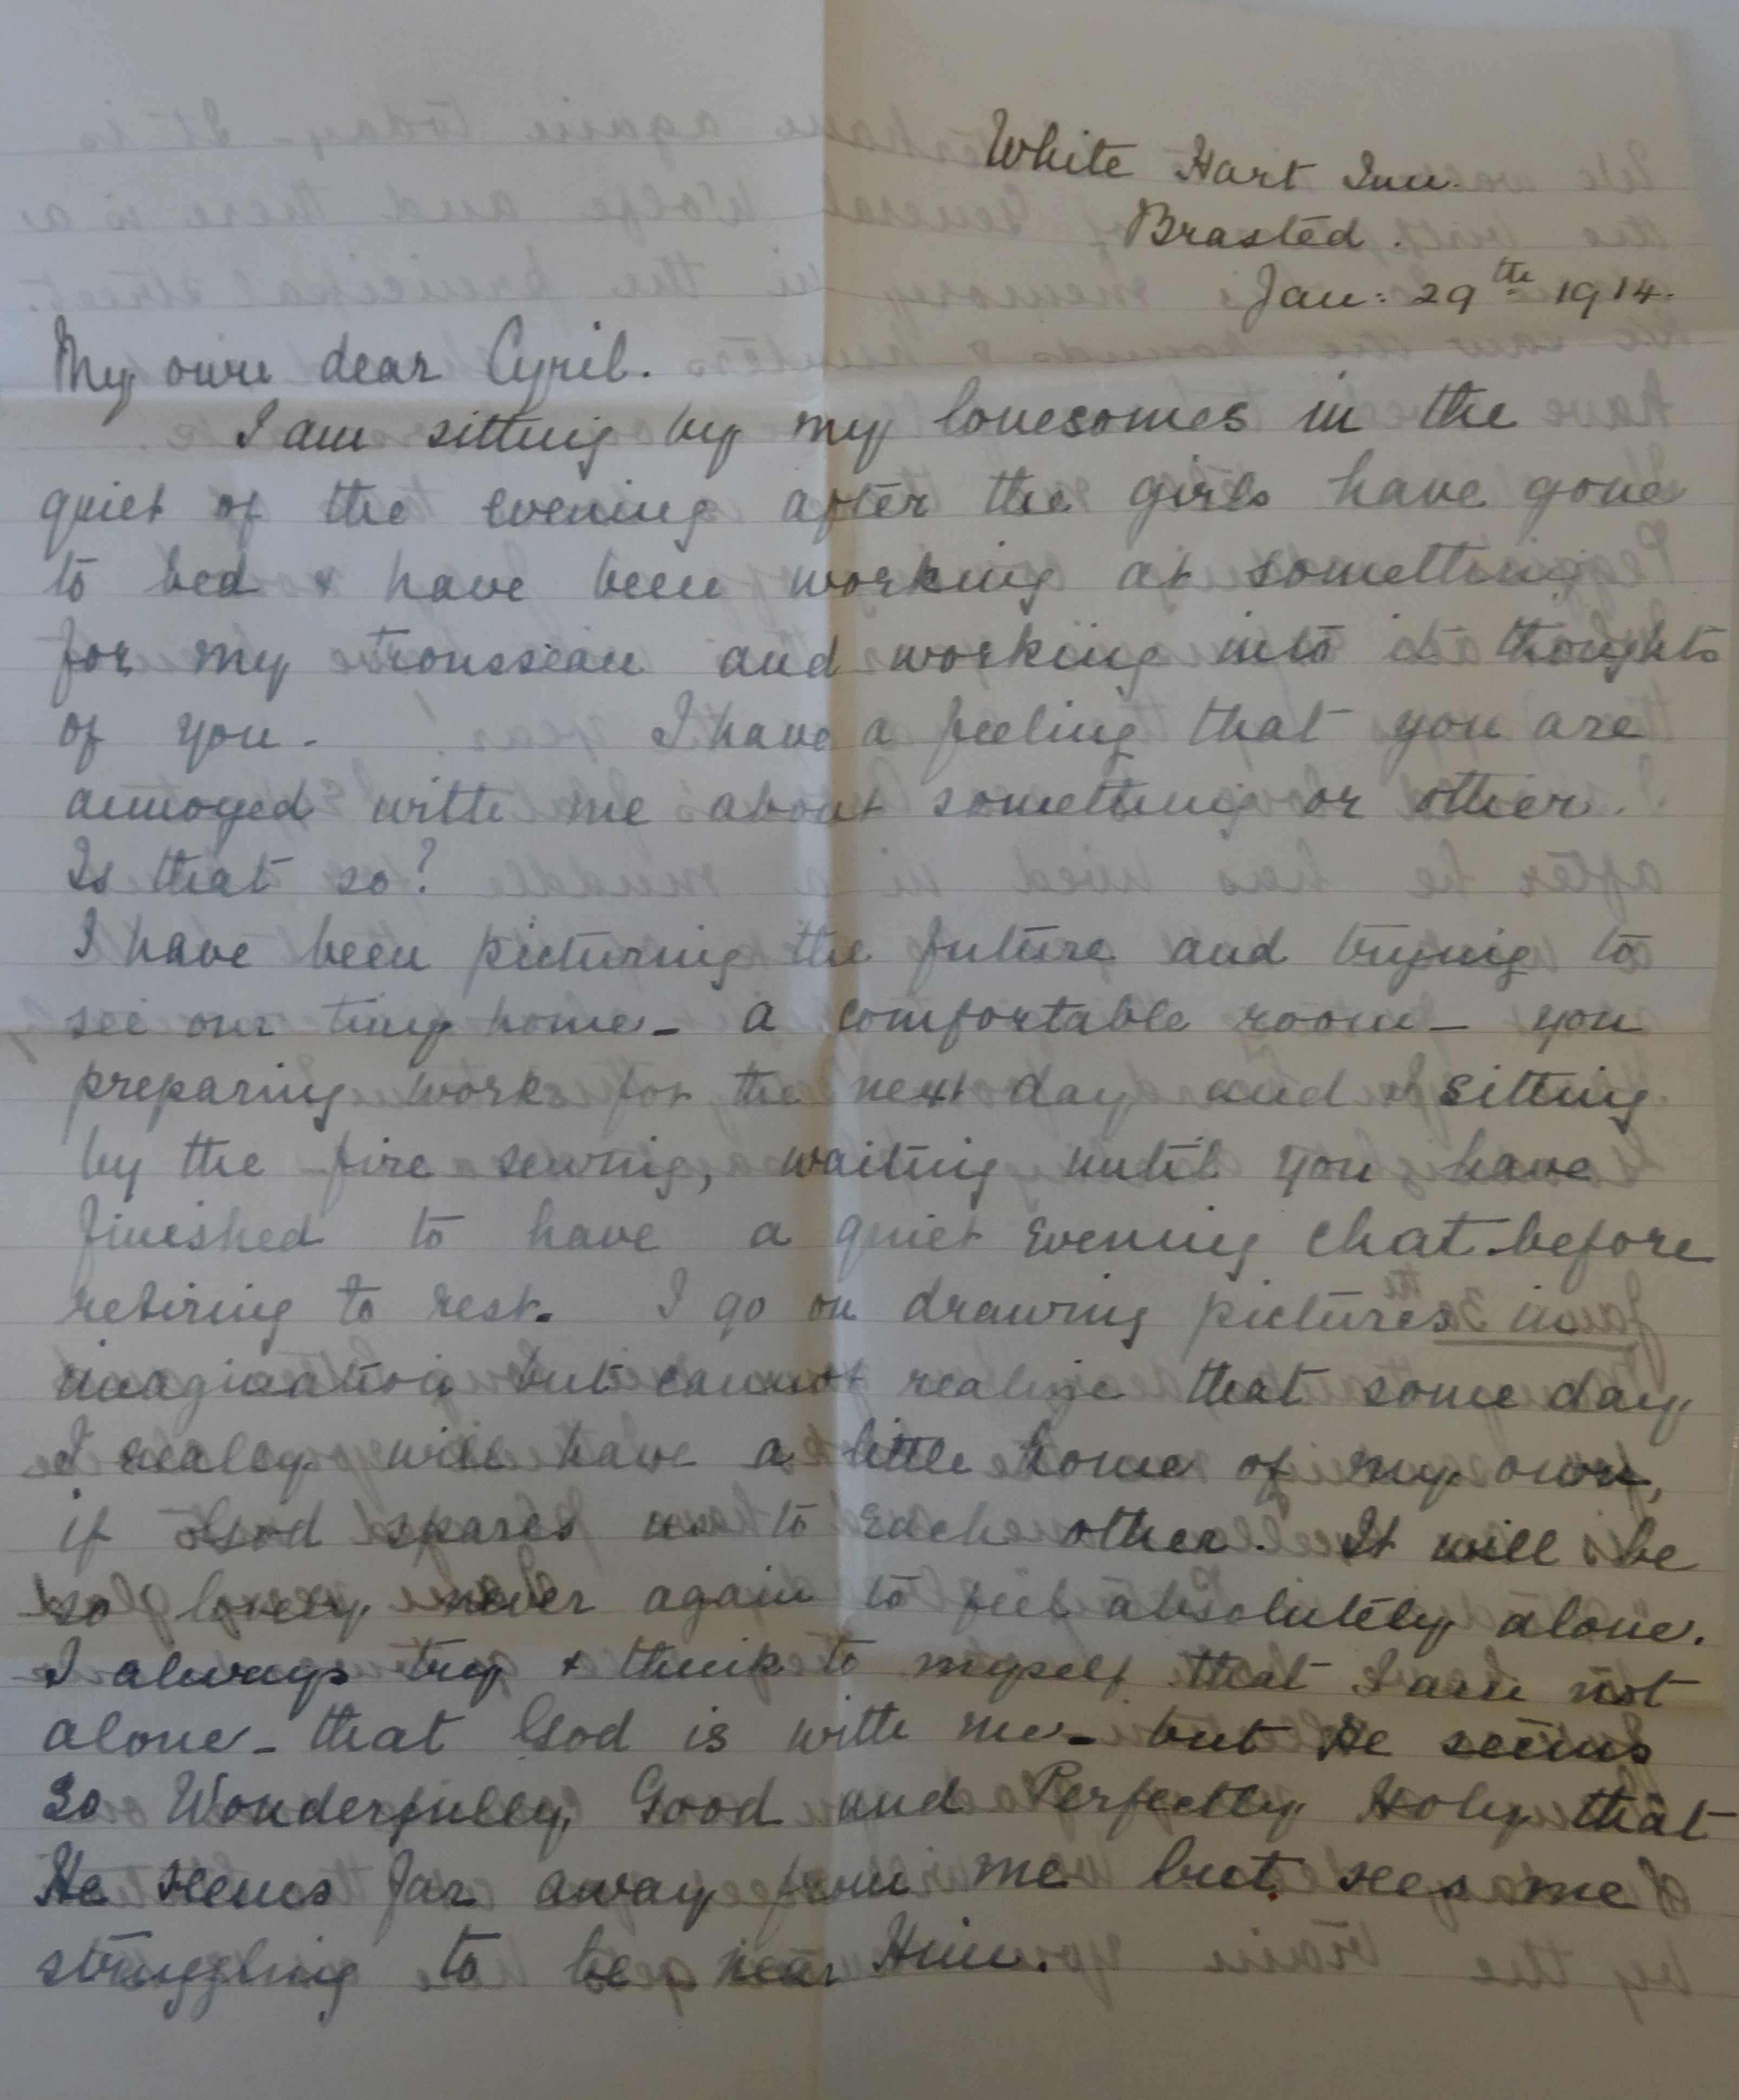 White Hart Inn.
Brasted.
Jan: 29th 1914.
My own dear Cyril.
I am sitting by my lonesomes in the
quiet of the evening after the girls have gone
to bed & have been working at something
for my trousseau and working into it thoughts
of you - I have a feeling that you are
annoyed with me about something or other.
Is that so?
I have been picturing the future and trying to
see our tiny home - a comfortable room - you
preparing work for the next day and I sitting
by the fire sewing, waiting until you have
finished to have a quiet evening chat before
retiring to rest. I go on drawing pictures in
imagination but cannot realize that some day
I really will have a little home of my own,
if God spares us to each other. It will be
so lovely never again to feel absolutely alone.
I always try & think to myself that I am not
alone - that God is with me - but He seems
so Wonderfully Good and Perfectly Holy that
He seems far away from me but sees me
struggling to be near Him.